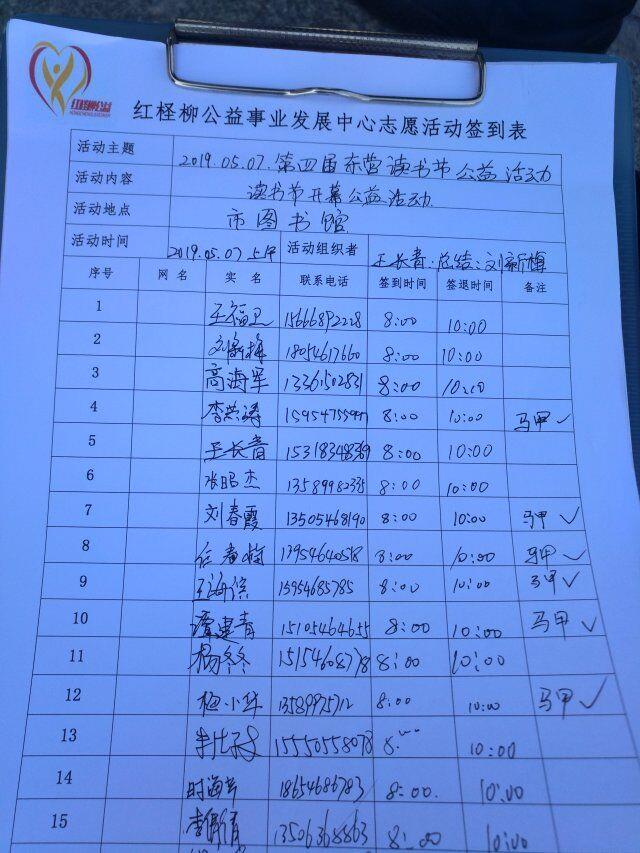 红柽柳公益事业发展中心志愿活动签到表
活动主题 2019.05.07.第四届东营读书节公益活动
活动内容 读书节开幕公益活动
活动地点 市图书馆
活动时间 2019.05.07 上午 活动组织者 王长青:总结:刘新梅
序号 网名 实名 联系电话 签到时间 签退时间 备注
1 王福卫 15666892228 8:00 10:00
2 刘新梅 18054617660 8:00 10:00
3 高海军 13361502831 8:00 10:00
4 李洪涛 8:00 10:00 马甲 ✓
5 王长青 15318348369 8:00 10:00
6 张昭杰 13589982335 8:00 10:00
7 刘春霞 13505468190 8:00 10:00 马甲 ✓
8 13954640518 8:00 10:00 马甲 ✓
9 15954685785 8:00 10:00 马甲 ✓
10 谭建青 15105464655 8:00 10:00 马甲 ✓
11 杨冬冬 15154608778 8:00 10:00
12 小华 13589975712 8:00 10:00 马甲 ✓
13 15550558078 8:00 10:00
14 时海芹 18654686783 8:00 10:00
15 13506368863 8:00 10:00